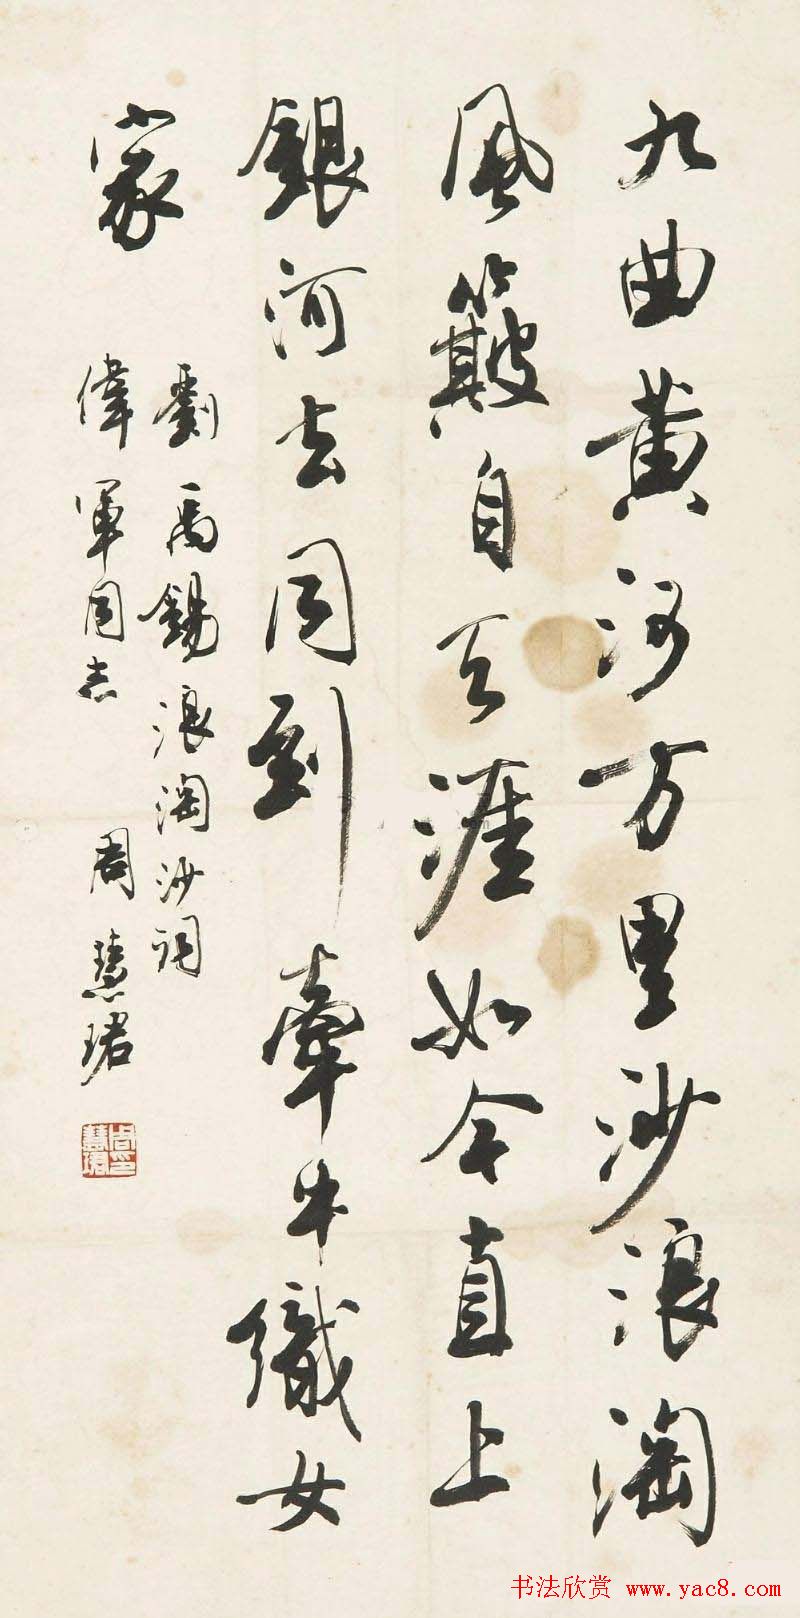 九曲黄河万里沙浪淘
風簸自天涯如今直上
銀河去同到牽牛織女
家
劉禹錫浪淘沙詞
偉軍同志 周慧珺
周印慧珺
书法欣赏 www.yac8.com